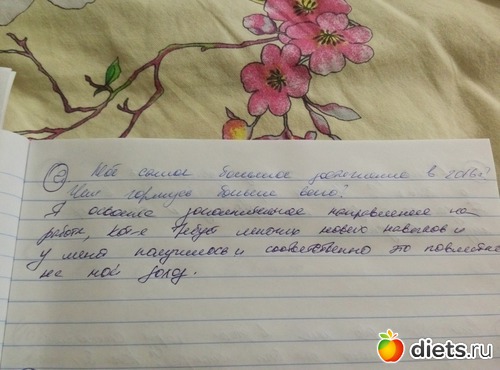 ② Моё самое большое достижение в 2016г?
Чем горжусь больше всего?
Я освоила дополнительное направление на
работе, кот-е требует многих новых навыков и
у меня получилось и соответственно это повлияло
на мой доход.
diets.ru